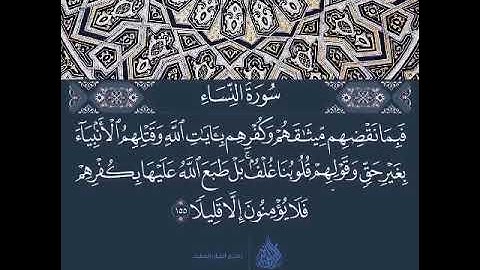 سُورَةُ النِّسَاءِ
فَبِمَا نَقْضِهِم مِّيثَٰقَهُمْ وَكُفْرِهِم بِـَٔايَٰتِ ٱللَّهِ وَقَتْلِهِمُ ٱلْأَنۢبِيَآءَ
بِغَيْرِ حَقٍّ وَقَوْلِهِمْ قُلُوبُنَا غُلْفٌۢ ۚ بَلْ طَبَعَ ٱللَّهُ عَلَيْهَا بِكُفْرِهِمْ
فَلَا يُؤْمِنُونَ إِلَّا قَلِيلًا ١٥٥